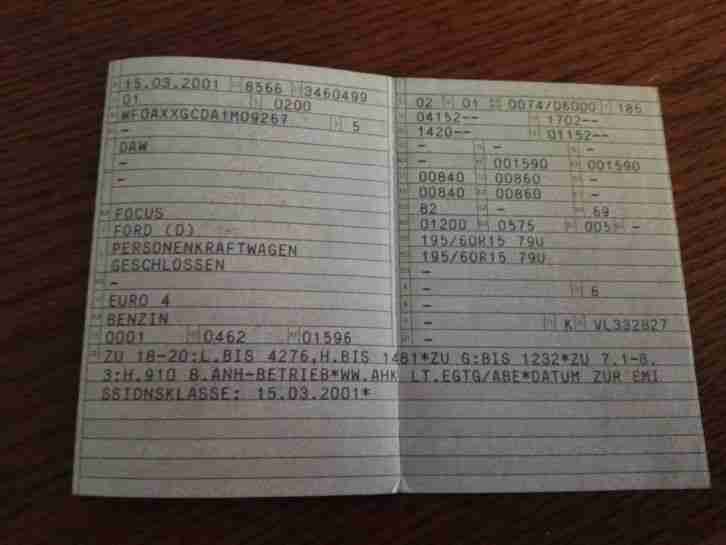 15.03.2001 8566 3460499
01 0200
WF0AXXGCDA1M09267 5
-
DAW
-
-
FOCUS
FORD (D)
PERSONENKRAFTWAGEN
GESCHLOSSEN
-
EURO 4
BENZIN
0001 0462 01596
02 01 0074/06000 186
04152-- 1702--
1420-- 01152--
- - -
- 001590 001590
00840 00860 -
00840 00860 -
82 - 69
01200 0575 005 -
195/60R15 79U
195/60R15 79U
-
- 6
-
- K VL332827
ZU 18-20:L.BIS 4276,H.BIS 1481*ZU G:BIS 1232*ZU 7.1-8.
3:H.910 B.ANH-BETRIEB*WW.AHK LT.EGTG/ABE*DATUM ZUR EMI
SSIONSKLASSE: 15.03.2001*